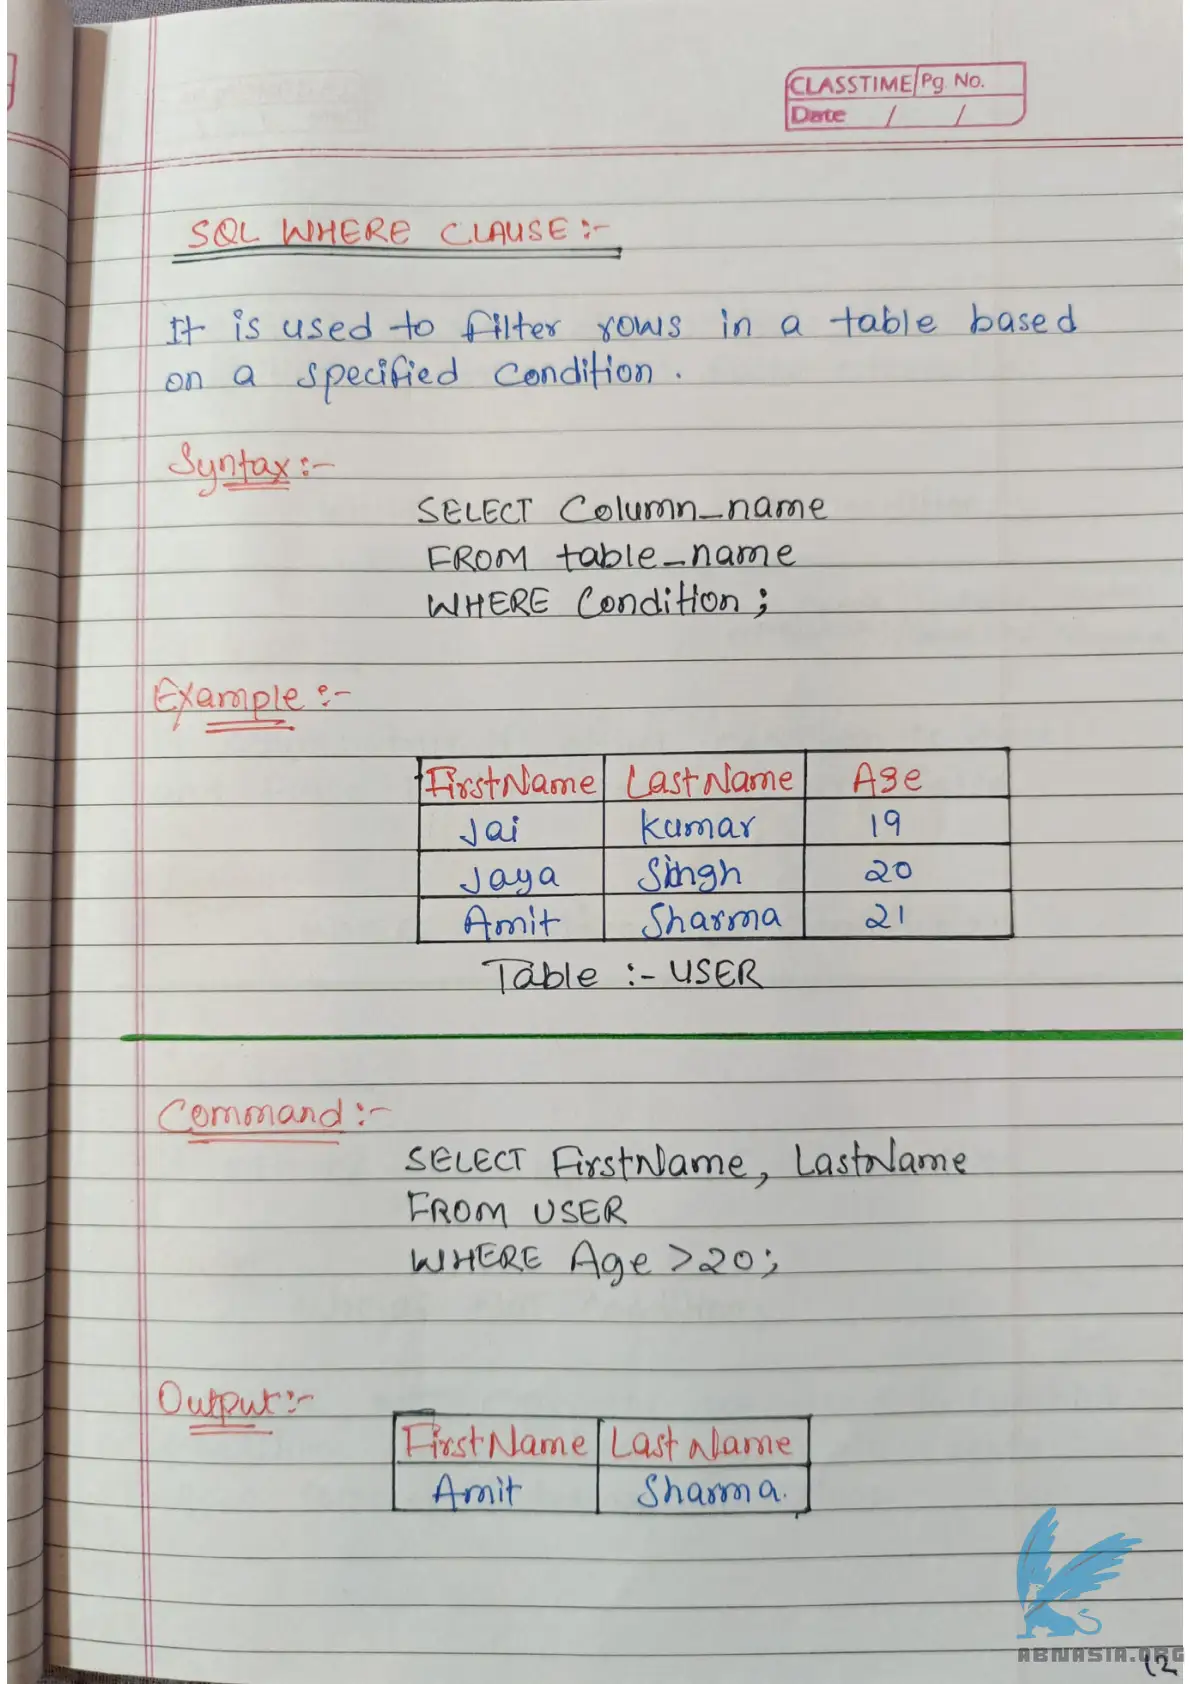 CLASSTIME Pg. No.
Date / /
SQL WHERE CLAUSE :-
It is used to filter rows in a table based
on a specified Condition.
Syntax :-
SELECT Column_name
FROM table_name
WHERE Condition ;
Example :-
FirstName LastName Age
Jai Kumar 19
Jaya Singh 20
Amit Sharma 21
Table :- USER
Command :-
SELECT FirstName, LastName
FROM USER
WHERE Age > 20 ;
Output :-
FirstName Last Name
Amit Sharma.
ABNASIA.ORG
12